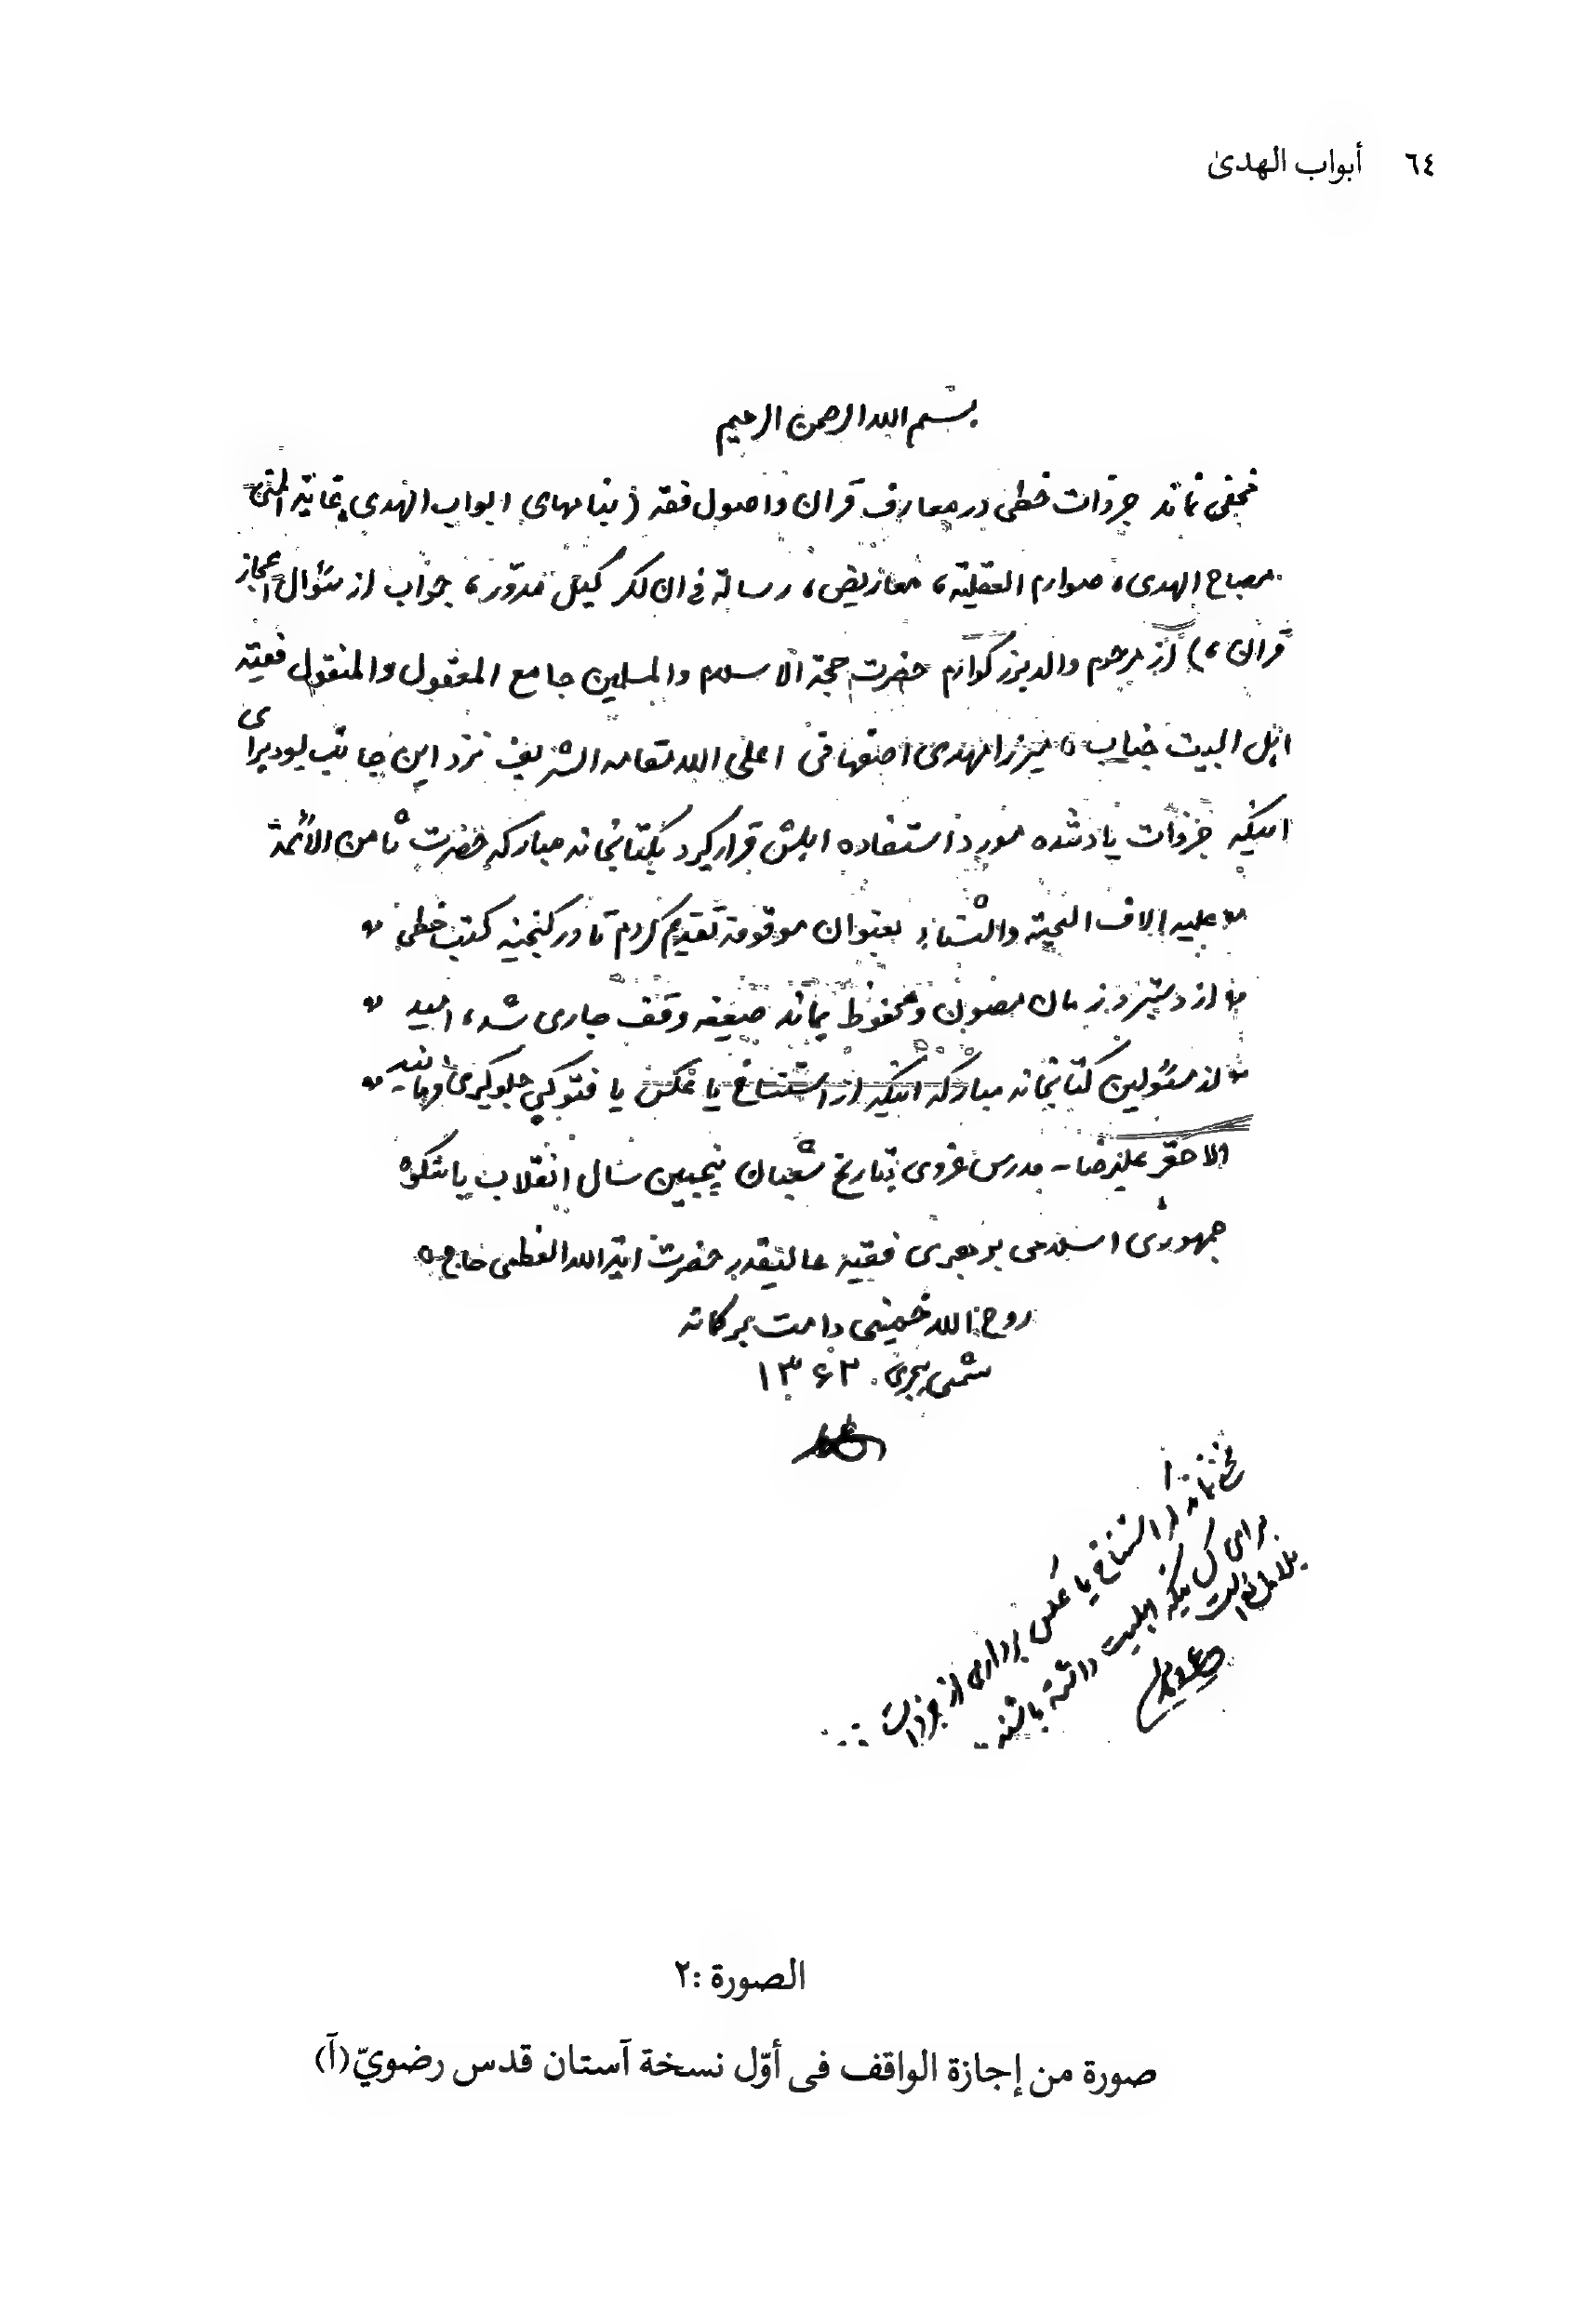 ٦٤ أبواب الهدى
بسم الله الرحمن الرحيم
مخفی نماند جزوات خطی در معارف قرآن و اصول فقه (بنامهای ابواب الهدی، غایة المنی
مصباح الهدی، صوارم العقلیة، معاریض، رسالة فی ان الکر کیل مدور، جواب از سئوال اعجاز
قرآن،) از مرحوم والد بزرگوارم حضرت حجة الاسلام والمسلمین جامع المعقول والمنقول فقیه
اهل البیت جناب میرزا مهدی اصفهانی اعلی الله مقامه الشریف نزد این جانب بود برای
اینکه جزوات یاد شده مورد استفاده اهلش قرار گیرد بکتابخانه مبارکه حضرت ثامن الأئمة
علیه الاف التحیة والثناء بعنوان موقوفه تقدیم کردم تا در گنجینه کتب خطی
از دستبرد زمان مصون و محفوظ بماند صیغه وقف جاری شد، امید
از مسئولین کتابخانه مبارکه اینکه از استنساخ یا عکس یا فتوکپی جلوگیری فرمایند
الاحقر علیرضا - مدرس غروی بتاریخ شعبان پنجمین سال انقلاب باشکوه
جمهوری اسلامی برهبری فقیه عالیقدر حضرت ایة الله العظمی حاج
روح الله خمینی دامت برکاته
شمسی هجری ۱۳۶۲
استنساخ یا عکس برداری از جزوات
برای کسانیکه اهلیت داشته باشند
بلامانع است
الصورة :٢
صورة من إجازة الواقف فى أوّل نسخة آستان قدس رضويّ (آ)